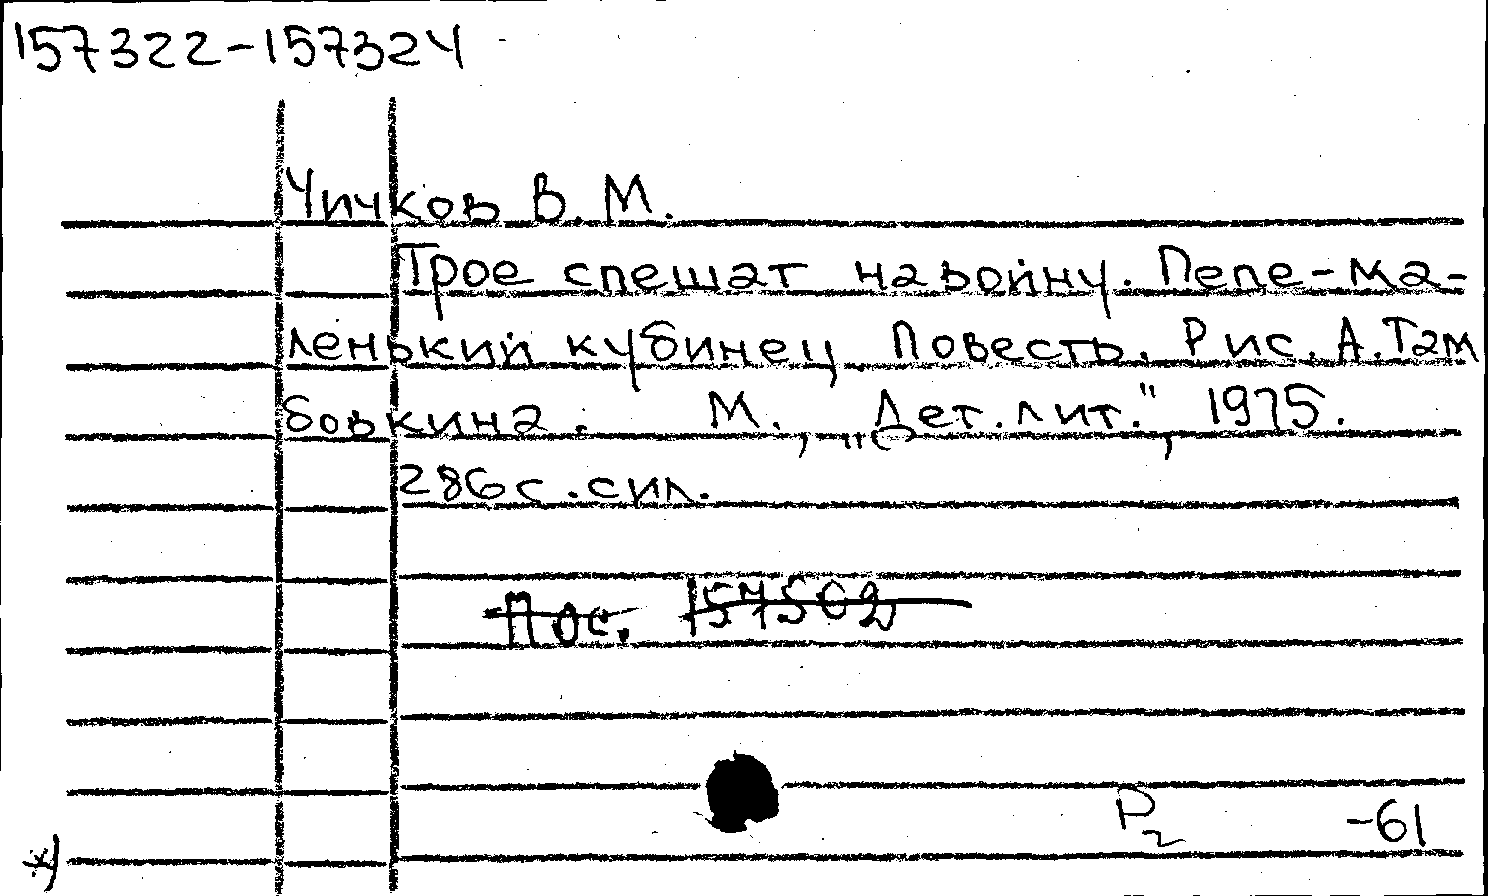 157322-157324
Чичков В. М.
Трое спешат на войну. Пепе-ма-
ленький кубинец Повесть. Рис. А. Там
бовкина. М., „Дет. лит.", 1975.
286 с. с ил.
Пос. 157502
Р2 -61
*)